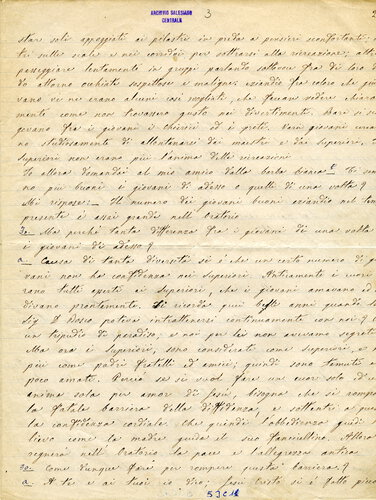 ARCHIVIO SALESIANO
CENTRALE
3
star soli appoggiati ai pilastri in preda a pensieri sconfortanti;
tri sulle scale e nei corridoi per sottrarsi alla ricreazione; altri
passeggiare lentamente in gruppi parlando sottovoce fra di loro d
do attorno occhiate sospettose e maligne; eziandio fra coloro che giu
vano ve ne erano alcuni così svogliati, che facean vedere chiara
mente come non trovassero gusto nei divertimenti. Rari si
gevano fra i giovani i chierici ed i preti. Varii giovani cerca
no studiosamente di allontanarsi dai maestri e dai superiori.
Superiori non erano più l'anima della ricreazione
Io allora domandai al mio amico dalla barba bianca:
no più buoni i giovani di adesso o quelli di una volta?
Mi rispose: Il numero dei giovani buoni eziandio nel tem
presente è assai grande nell'Oratorio.
Io. Ma perché tanta differenza fra i giovani di una volta
i giovani di adesso?
a. Causa di tanta diversità si è che un certo numero di
vani non ha confidenza nei Superiori. Anticamente i cuori
rano tutti aperti ai Superiori, che i giovani amavano ed
divano prontamente. Si ricorda quei begli anni quando
Sig D Bosco poteva intrattenersi continuamente con noi?
un tripudio di paradiso; e noi per lei non avevamo segreti
Ma ora i Superiori, sono considerati come Superiori, e
più come padri fratelli ed amici; quindi sono temuti
poco amati. Perciò se si vuol fare un cuor solo d'un
anima sola per amor di Gesù, bisogna che si rompa
la fatale barriera della diffidenza, e sottentri a questa
la confidenza cordiale che quindi l'obbedienza guidi
lievo come la madre guida il suo fanciullino. Allora
regnerà nell'Oratorio la pace e l'allegrezza antica
Io Come dunque fare per rompere questa barriera?
a. A te e ai tuoi io dico; Gesù Cristo si è fatto pi